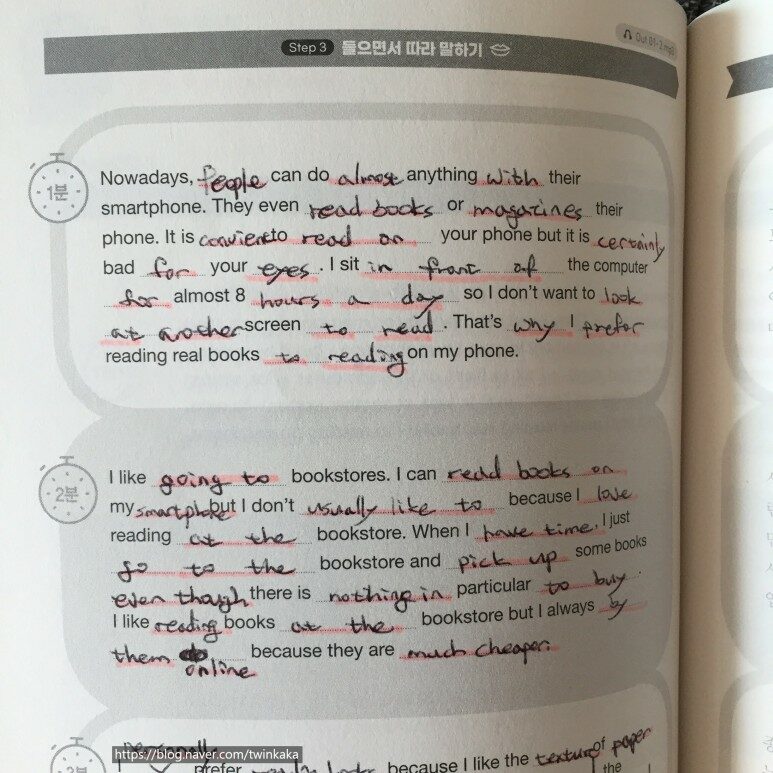 Step 3 들으면서 따라 말하기
Out 01-2.mp3
1분
Nowadays, People can do almost anything with their
smartphone. They even read books or magazines their
phone. It is convient to read on your phone but it is certainly
bad for your eyes. I sit in front of the computer
for almost 8 hours a day so I don't want to look
at another screen to read. That's why I prefer
reading real books to reading on my phone.
2분
I like going to bookstores. I can read books on
my smartphone but I don't usually like to because I love
reading at the bookstore. When I have time, I just
go to the bookstore and pick up some books
even though there is nothing in particular to buy.
I like reading books at the bookstore but I always by
them online because they are much cheaper.
3분
personally
prefer because I like the texture of paper
the
https://blog.naver.com/twinkaka